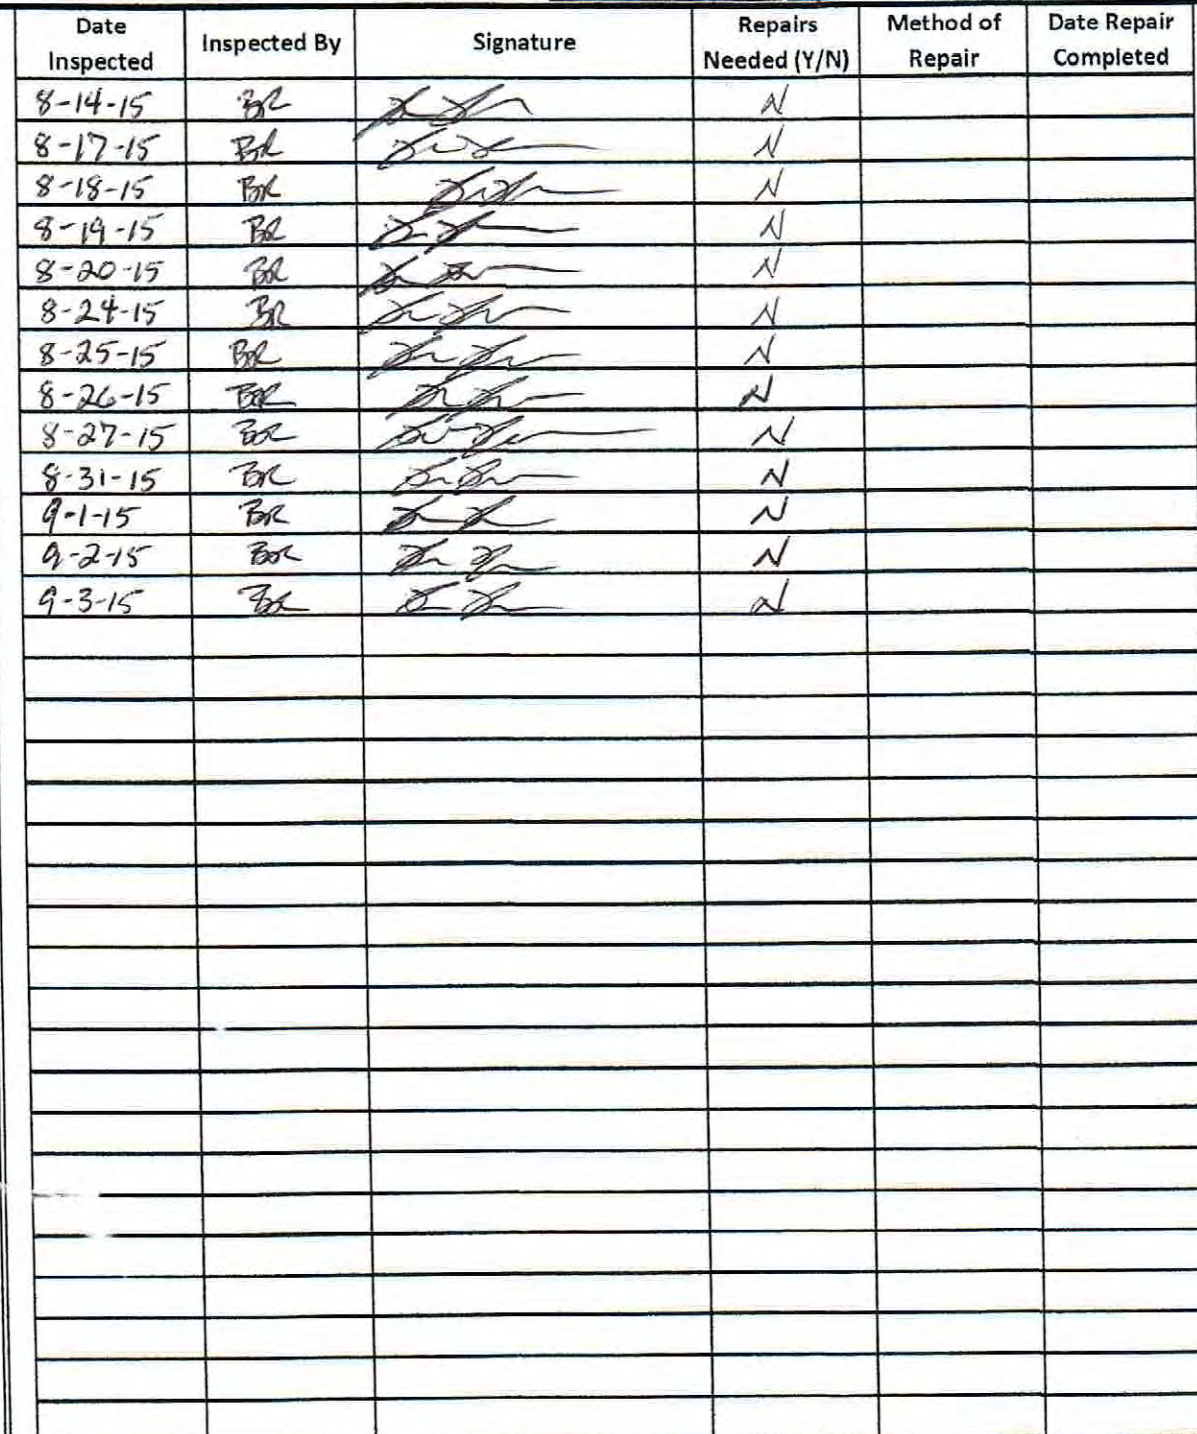 Date Inspected Inspected By Signature Repairs Needed (Y/N) Method of Repair Date Repair Completed
8-14-15 BR N
8-17-15 BR N
8-18-15 BR N
8-19-15 BR N
8-20-15 BR N
8-24-15 BR N
8-25-15 BR N
8-26-15 BR N
8-27-15 BR N
8-31-15 BR N
9-1-15 BR N
9-2-15 BR N
9-3-15 BR N